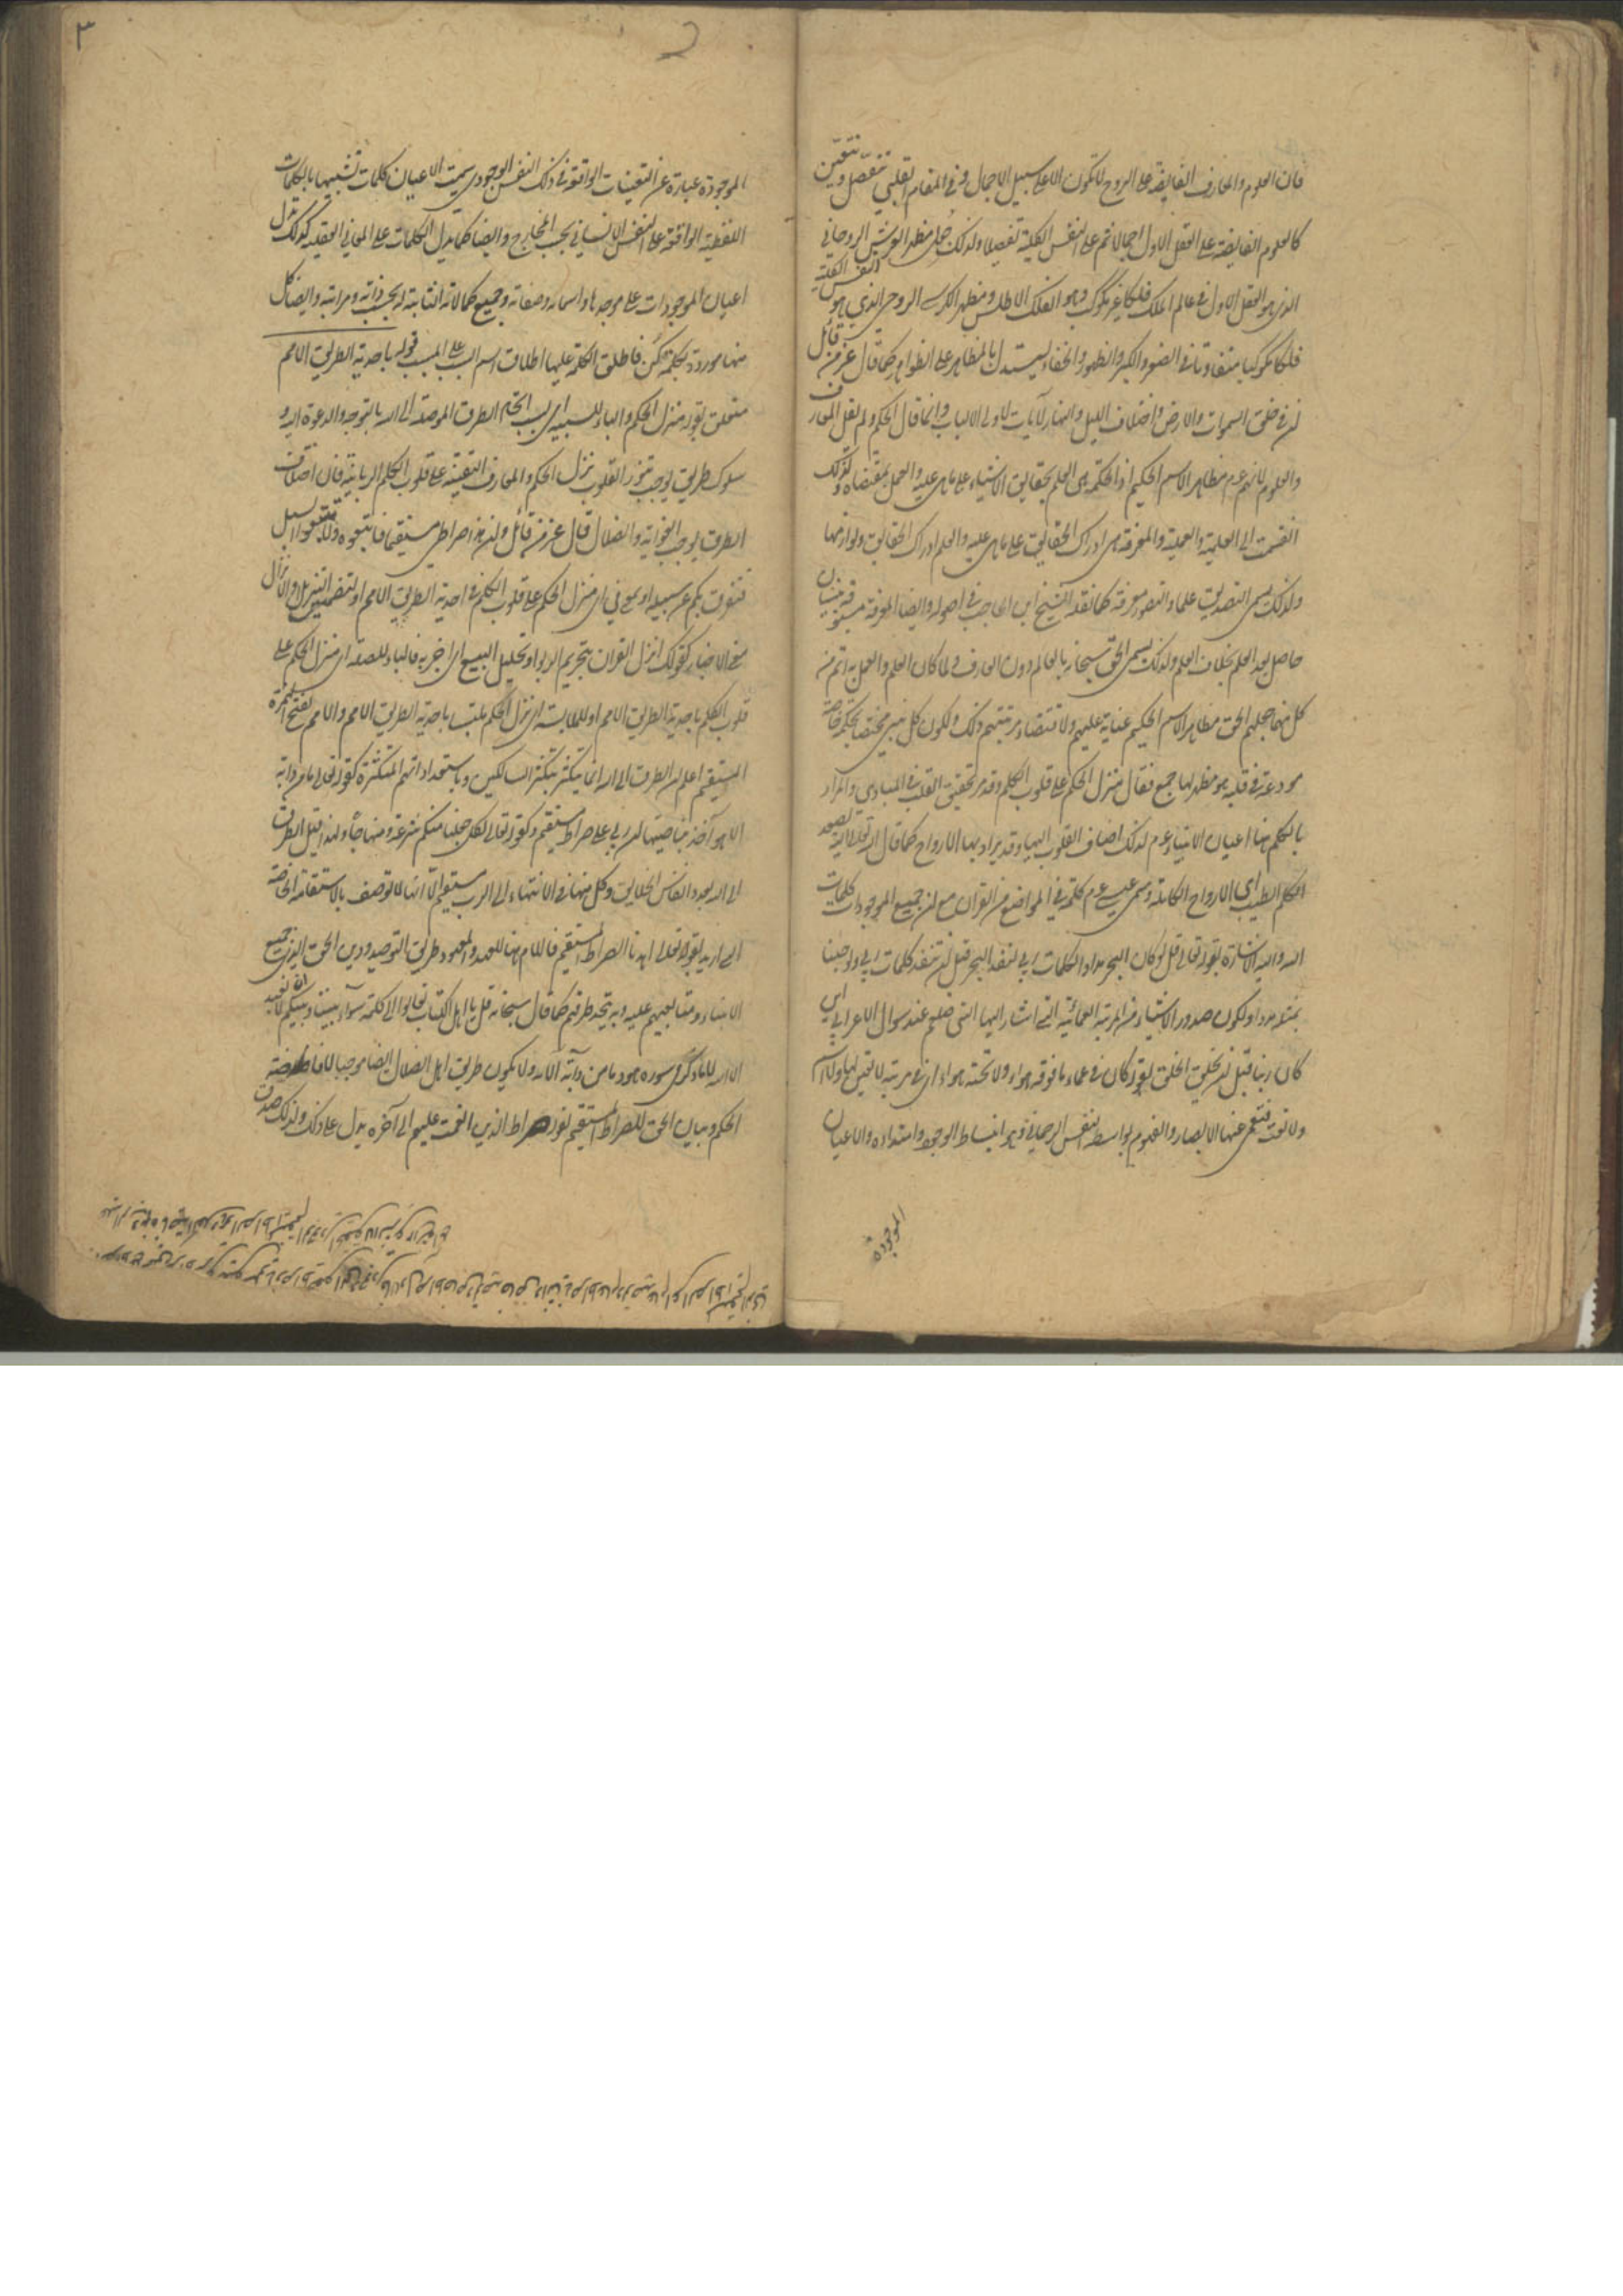 فان العلوم والمعارف الفايضة على الروح لا تكون الا على سبيل الاجمال وفي المقام القلبي تتفصل وتتعين
كالعلوم الفايضة على العقل الاول اجمالا ثم على النفس الكلية تفصيلا ولذلك جعل مظهر العرش الروحاني
الذي هو العقل الاول في عالم الملك فلكا غير مكوكب وهو الفلك الاطلس ومظهر الكرسي الروحي الذي هو النفس الكلية
فلكا مكوكبا متفاوتا في الصغر والكبر والظهور والخفاء ليستدل بالمظاهر على الظواهر كما قال عز من قائل
ان في خلق السموات والارض واختلاف الليل والنهار لآيات لاولي الالباب وانما قال الحكم ولم يقل المعارف
والعلوم لانهم عم مظاهر الاسم الحكيم اذ الحكمة هي العلم بحقايق الاشياء على ما هي عليه والعمل بمقتضاه ولذلك
انقسمت الى العلمية والعملية والمعرفة هي ادراك الحقايق على ما هي عليه والعلم ادراك الحقايق ولوازمها
ولذلك يسمى التصديق علما والتصور معرفة كما نقله الشيخ ابن الحاجب في اصوله وايضا المعرفة مسبوقة بنسيان
حاصل بعد العلم بخلاف العلم ولذلك يسمى الحق سبحانه بالعالم دون العارف ولما كان العلم والعمل به اتم من
كل منهما جعلهم الحق مظاهر الاسم الحكيم عناية عليهم ولاقتضاء مرتبتهم ذلك ولكون كل نبي مختصا بحكمة خاصة
مودعة في قلبه هو مظهر لها جمع فقال منزل الحكم على قلوب الكلم وقد مر تحقيق القلب في المبادي والمراد
بالكلم هنا اعيان الانبياء عم لذلك اضاف القلوب اليها وقد يراد بها الارواح كما قال الله تعالى اليه يصعد
الكلم الطيب اي الارواح الكاملة وسمي عيسى عم كلمة في المواضع من القرآن مع ان جميع الموجودات كلمات
الله واليه الاشارة بقوله تعالى قل لو كان البحر مدادا لكلمات ربي لنفد البحر قبل ان تنفد كلمات ربي ولو جئنا
بمثله مددا ولكون صدور الاشياء من المرتبة العمائية التي اشار اليها النبي صلعم عند سوال الاعرابي اين
كان ربنا قبل ان يخلق الخلق بقوله كان في عماء ما فوقه هواء ولا تحته هواء اي في مرتبة لا تعين لها ولا اسم
ولا نعت فتعمى عنها الابصار والفهوم بواسطة النفس الرحماني وهو انبساط الوجود وامتداده والاعيان
الموجودة
٣
الموجودة عبارة عن التعينات الواقعة في ذلك النفس الوجودي سميت الاعيان كلمات تشبيها بالكلمات
اللفظية الواقعة على النفس الانساني بحسب المخارج وايضا كما يدل الكلمات على المعاني العقلية كذلك يدل
اعيان الموجودات على موجدها واسمائه وصفاته وجميع كمالاته الثابتة له بحسب ذاته ومراتبه وايضا كل
منها موجودة بكلمة كن فاطلق الكلمة عليها اطلاق اسم السبب على المسبب قوله باحدية الطريق الامم
متعلق بقوله منزل الحكم والباء للسببية اي بسبب اتحاد الطرق الموصلة الى الله بالتوجه والدعوة اليه و
سلوك طريق يوجب تنور القلوب نزل الحكم والمعارف اليقينية على قلوب الكلم الربانية فان اختلاف
الطرق يوجب الغواية والضلال قال عز من قائل وان هذا صراطي مستقيما فاتبعوه ولا تتبعوا السبل
فتفرق بكم عن سبيله او بمعنى في اي منزل الحكم على قلوب الكلم في احدية الطريق الامم او لتضمين التنزيل والانزال
معنى الاخبار كقولك انزل القرآن بتحريم الربوا وتحليل البيع اي اخبر به فالباء للصلة اي منزل الحكم على
قلوب الكلم باحدية الطريق الامم او للملابسة اي نزل الحكم ملتبسا باحدية الطريق الامم والامم بفتح الهمزة
المستقيم اعلم ان الطرق الى الله انما يتكثر بتكثر السالكين وباستعداداتهم المتكثرة كقوله تعالى ما من دابة
الا هو آخذ بناصيتها ان ربي على صراط مستقيم وكقوله تعالى لكل جعلنا منكم شرعة ومنهاجا ولهذا قيل الطرق
الى الله بعدد انفاس الخلايق وكل منها في الانتهاء الى الرب مستقيم الا انها لا توصف بالاستقامة الخاصة
التي اريد بقوله تعالى اهدنا الصراط المستقيم فاللام هنا للعهد والمعهود طريق التوحيد ودين الحق الذي جميع
الانبياء ومتابعيهم عليه وبه يتحد طرقهم كما قال سبحانه قل يا اهل الكتاب تعالوا الى كلمة سواء بيننا وبينكم الا نعبد
الا الله لا ما ذكر في سورة هود ما من دابة الآية والا يكون طريق اهل الضلال ايضا موجبا لافاضة
الحكم وبيان الحق للصراط المستقيم بقوله صراط الذين انعمت عليهم الى آخره يدل على ذلك ولذلك صدق